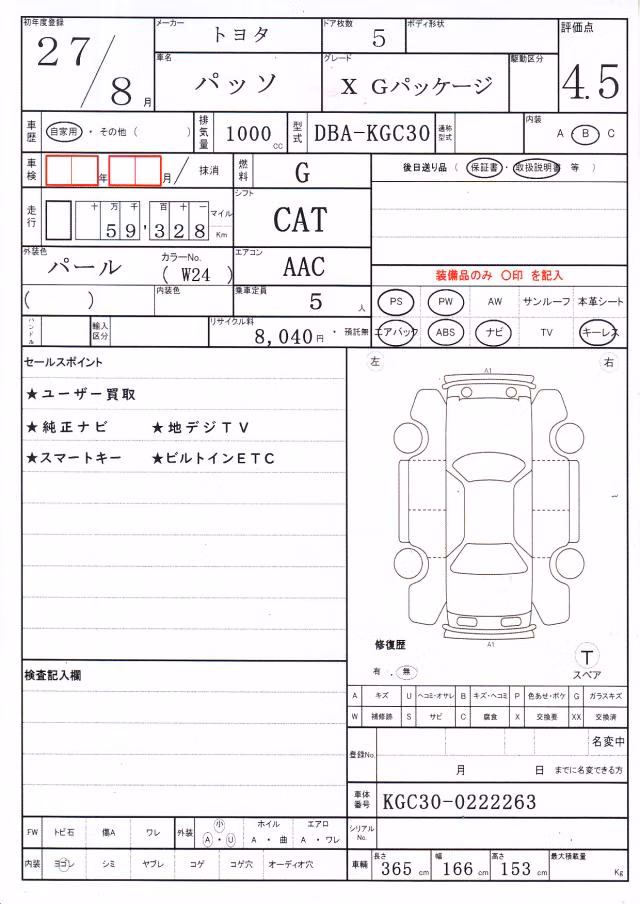 初年度登録 メーカー トヨタ ドア枚数 5 ボディ形状 評価点
27/8月 車名 パッソ グレード X Gパッケージ 駆動区分 4.5
車歴 自家用・その他( ) 排気量 1000cc 型式 DBA-KGC30 通称型式 内装 A・B・C
車検 年 月/ 抹消 燃料 G 後日送り品(保証書・取扱説明書 等)
走行 十万千百十一 59,328 マイル Km シフト CAT
外装色 パール カラーNo. (W24) エアコン AAC 装備品のみ 〇印 を記入
( ) 内装色 乗車定員 5人 PS PW AW サンルーフ 本革シート
ハンドル 輸入区分 リサイクル料 8,040円・預託無 エアバック ABS ナビ TV キーレス
セールスポイント 左 右
A1
★ユーザー買取
★純正ナビ ★地デジTV
★スマートキー ★ビルトインETC
A1
修復歴
有・無 T
スペア
検査記入欄
A キズ U ヘコミ・オサレ B キズ・ヘコミ P 色あせ・ボケ G ガラスキズ
W 補修跡 S サビ C 腐食 X 交換要 XX 交換済
登録No. 名変中
月 日 までに名変できる方
車体番号 KGC30-0222263
FW トビ石 傷A ワレ 外装 小 A・U ホイル A・曲 エアロ A・ワレ シリアルNo.
内装 ヨゴレ シミ ヤブレ コゲ コゲ穴 オーディオ穴 車輌 長さ 365cm 幅 166cm 高さ 153cm 最大積載量 Kg